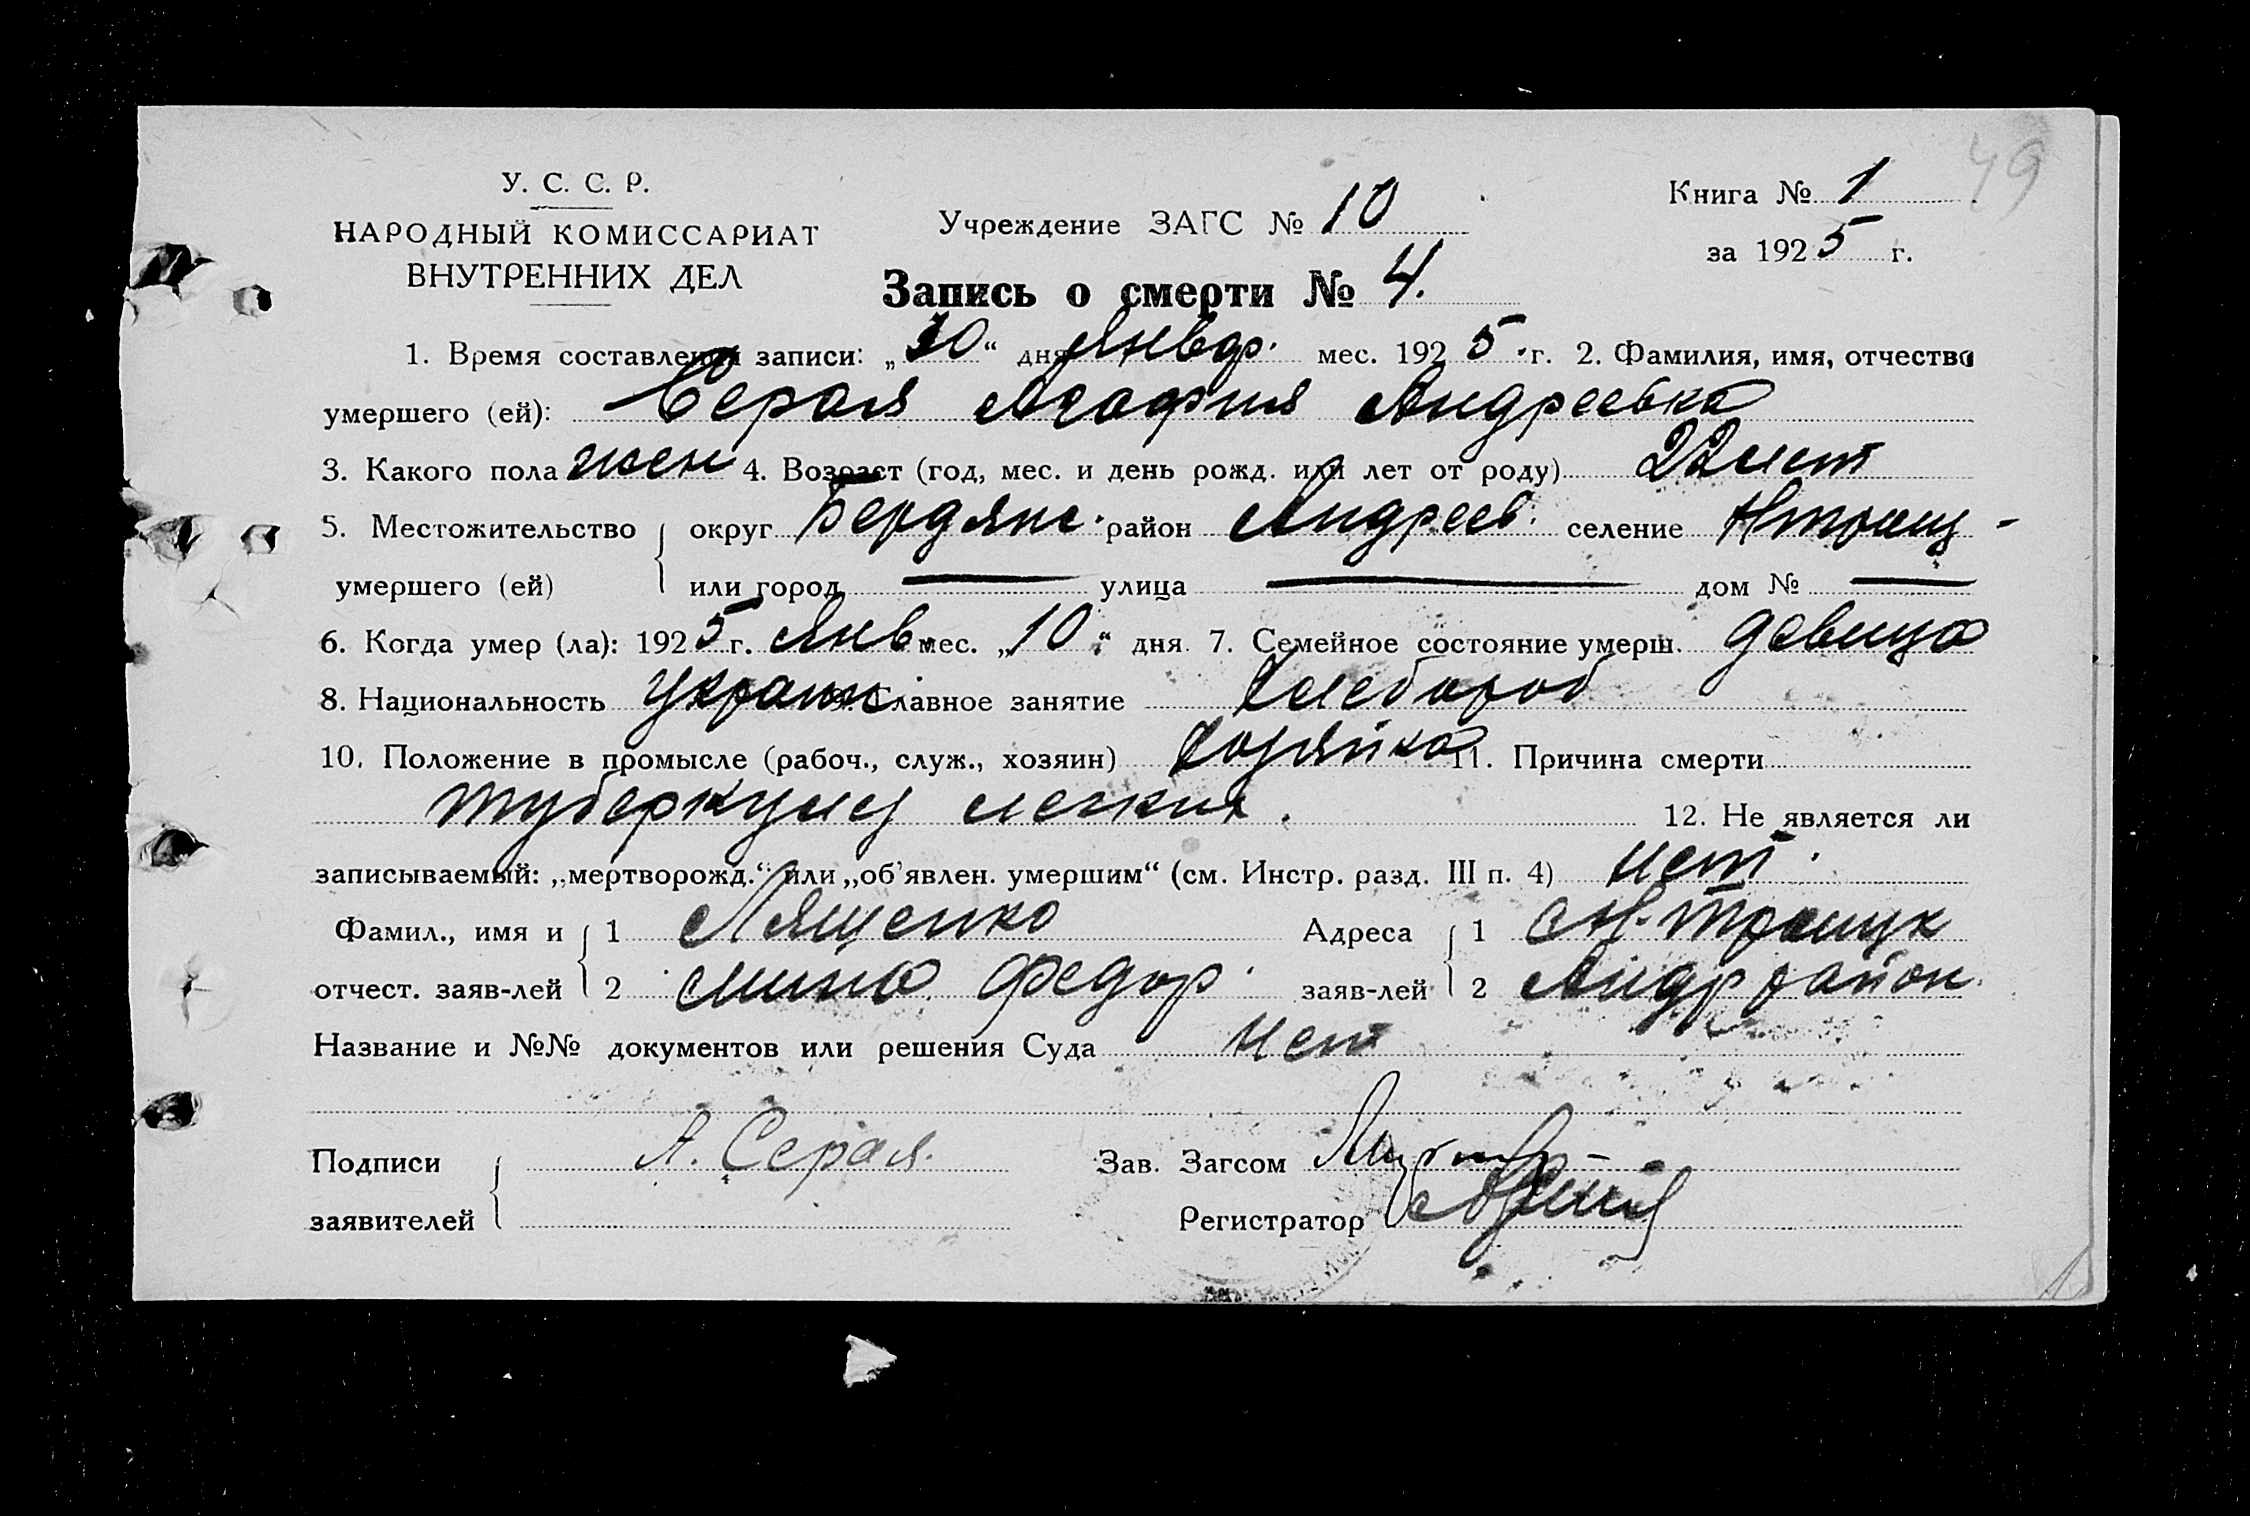 49
У. С. С. Р.
НАРОДНЫЙ КОМИССАРИАТ
ВНУТРЕННИХ ДЕЛ
Учреждение ЗАГС № 10
Книга № 1
за 1925 г.
Запись о смерти № 4.
1. Время составления записи: „10“ дня Январ. мес. 1925 г. 2. Фамилия, имя, отчество
умершего (ей): Серая Агафия Андреевна
3. Какого пола жен 4. Возраст (год, мес. и день рожд. или лет от роду) 22 лет
5. Местожительство округ Бердянс. район Андреев. селение Нтроиц-
умершего (ей) или город — улица — дом № —
6. Когда умер (ла): 1925 г. Янв. мес. „10“ дня. 7. Семейное состояние умерш. девица
8. Национальность украин 9. Главное занятие хлебороб
10. Положение в промысле (рабоч., служ., хозяин) хозяйка 11. Причина смерти
туберкулез легких.
12. Не является ли
записываемый: „мертворожд.“ или „об'явлен. умершим“ (см. Инстр. разд. III п. 4) нет.
Фамил., имя и 1 Лященко Адреса 1 с Н. Троицк
отчест. заяв-лей 2 Мина Федор. заяв-лей 2 Андр район.
Название и №№ документов или решения Суда нет
Подписи А. Серая. Зав. Загсом
заявителей Регистратор